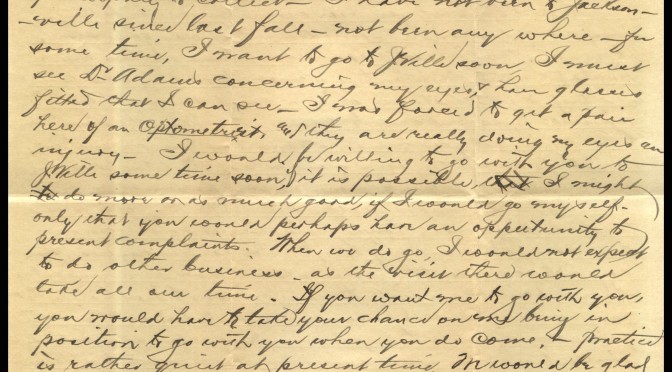 to collect – I have not been to Jackson-
ville since last fall – not been any where – for
some time, I want to go to J.Ville soon I must
see Dr Adams concerning my eyes & have glasses
fitted that I can see – I was forced to get a pair
here of an Optometrist, they are really doing my eyes an
injury – I would be willing to go with you to
J.Ville some time soon, it is possible, I might
to do more or as much good, if I would go myself –
only that you would perhaps have an opportunity to
present complaints. When we do go, I would not expect
to do other business – as the visit there would
take all our time. If you want me to go with you,
you would have to take your chance on me being in
position to go with you when you do come, – practice
is rather quiet at present time would be glad